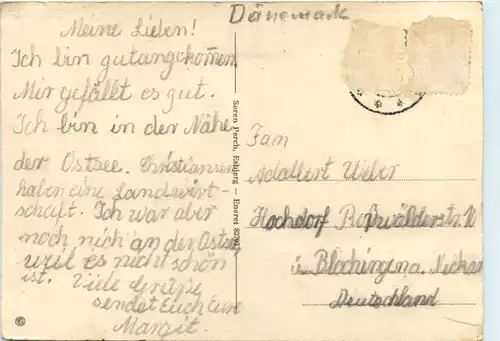 Dänemark
Meine Lieben!
Ich bin gutangekommen.
Mir gefällt es gut.
Ich bin in der Nähe
der Ostsee. Christiansen
haben eine Landwirt-
schaft. Ich war aber
noch nich an der Ostsee
weil es nicht schön
ist. Viele Grüße
sendet Euch Eure
Margit.
Søren Perch, Esbjerg — Eneret
Fam
Adalbert Weber
Hochdorf Roßwälderstr. 10
ü. Blochingen a. Neckar
Deutschland